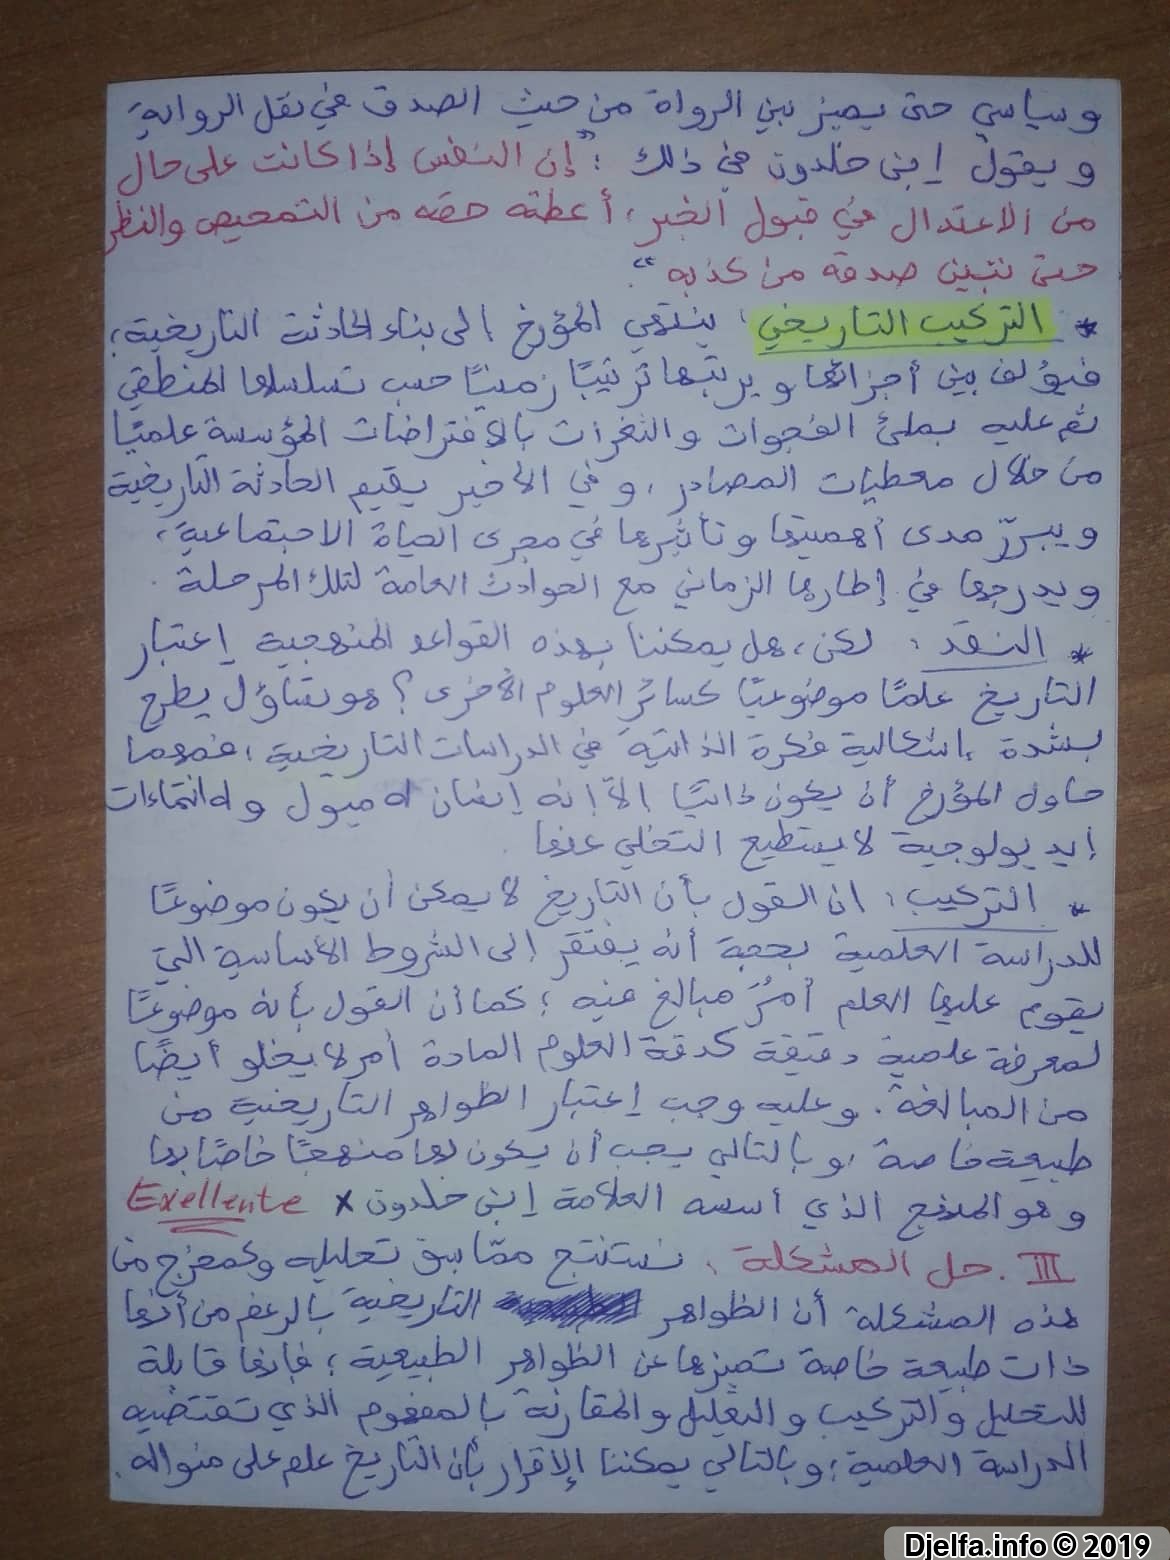 وسياسي حتى يميز بين الرواة من حيث الصدق في نقل الرواية
ويقول إبن خلدون في ذلك : "إن النفس إذا كانت على حال
من الاعتدال في قبول الخبر، أعطته حقه من التمحيص والنظر
حتى نتبين صدقه من كذبه".
* التركيب التاريخي : ينتهي المؤرخ الى بناء الحادثة التاريخية،
فيؤلف بين أجزائها ويرتبها ترتيبًا زمنيًا حسب تسلسلها المنطقي
ثم عليه بملئ الفجوات والثغرات بالافتراضات المؤسسة علميًا
من خلال معطيات المصادر، وفي الأخير يقيم الحادثة التاريخية
ويبرّز مدى أهميتها وتأثيرها في مجرى الحياة الاجتماعية،
ويدرجها في إطارها الزماني مع الحوادث العامة لتلك المرحلة.
* النقد : لكن، هل يمكننا بهذه القواعد المنهجية إعتبار
التاريخ علمًا موضوعيًا كسائر العلوم الأخرى؟ هو تساؤل يطرح
بشدة إشكالية فكرة الذاتية في الدراسات التاريخية، فمهما
حاول المؤرخ أن يكون ذاتيًا إلا إنه إنسان له ميول وله انتماءات
إيديولوجية لا يستطيع التخلي عنها.
* التركيب : ان القول بأن التاريخ لا يمكن أن يكون موضوعًا
للدراسة العلمية بحجة أنه يفتقر إلى الشروط الأساسية التي
يقوم عليها العلم أمرٌ مبالغ فيه ؛ كما أن القول بأنه موضوعًا
لمعرفة علمية دقيقة كدقة العلوم المادة أمر لا يخلو أيضًا
من المبالغة. وعليه وجب إعتبار الظواهر التاريخية من
طبيعة خاصة وبالتالي يجب أن يكون لها منهجًا خاصًا بها
وهو المنهج الذي أسسه العلامة إبن خلدون x Exellente
III. حل المشكلة : نستنتج ممّا سبق تحليله وكمخرج من
هذه المشكلة أن الظواهر التاريخية بالرغم من أنها
ذات طبيعة خاصة تميزها عن الظواهر الطبيعية ؛ فإنها قابلة
للتحليل والتركيب والتعليل والمقارنة بالمفهوم الذي تقتضيه
الدراسة العلمية ؛ وبالتالي يمكننا الإقرار بأن التاريخ علم على منواله.
Djelfa.info © 2019